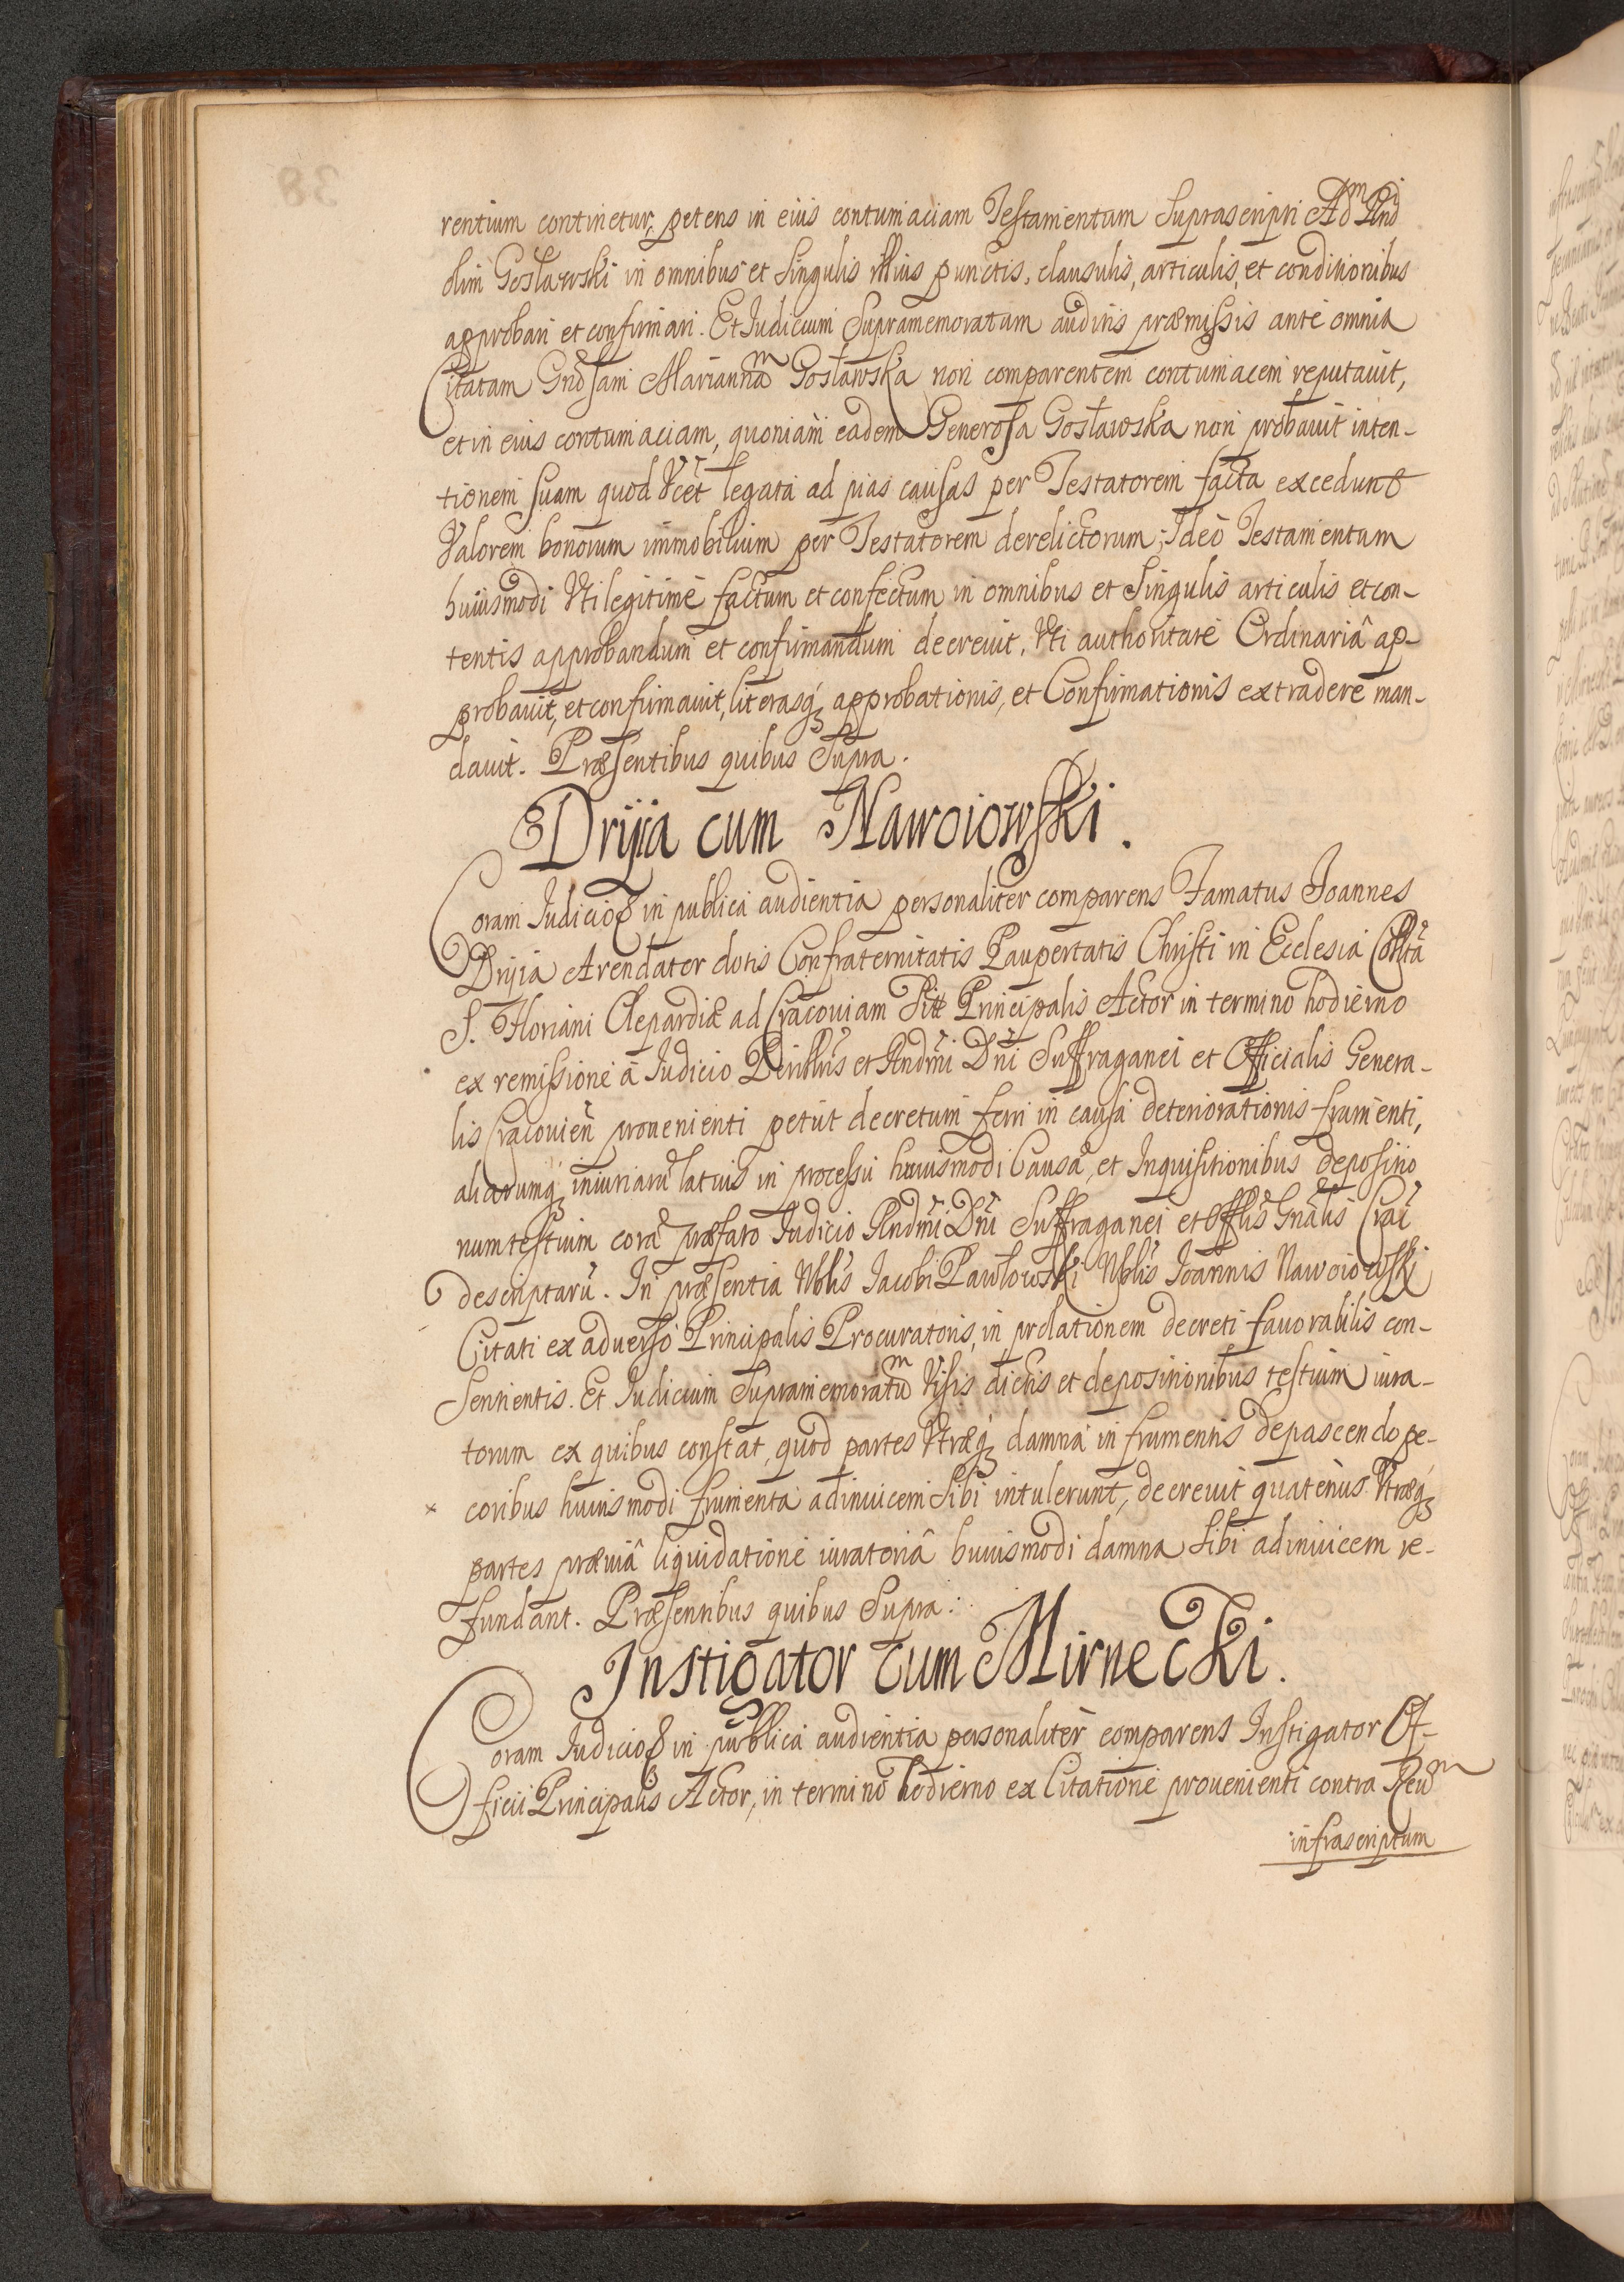 rentium continetur, petens in eius contumaciam Testamentum Suprascripti Adm Rndi
olim Gosławski in omnibus et singulis illius punctis, clausulis, articulis, et conditionibus
approbari et confirmari. Et Iudicium Supramemoratum auditis præmissis ante omnia
Citatam Gnosam Mariannam Gosławska non comparentem contumacem reputauit,
et in eius contumaciam, quoniam eadem Generosa Gosławska non probauit inten-
tionem suam quod vcet legata ad pias causas per Testatorem facta excedunt
Valorem bonorum immobilium per Testatorem derelictorum; Ideo Testamentum
huiusmodi Vti legitimè factum et confectum in omnibus et Singulis articulis et con-
tentis approbandum et confirmandum decreuit, Vti authoritate Ordinariâ ap-
probauit, et confirmauit, literasq; approbationis, et Confirmationis extradere man-
dauit. Præsentibus quibus Supra.
Dryia cum Nawoiowski.
Coram Iudicio in publica audientia personaliter comparens Famatus Ioannes
Dryia Arendator dotis Confraternitatis Paupertatis Christi in Ecclesia Collta
S. Floriani Clepardiæ ad Cracouiam Principalis Actor in termino hodierno
ex remissione à Iudicio Perillris et Rndmi Dni Suffraganei et Officialis Genera-
lis Cracouien prouenienti petiit decretum ferri in causa deteriorationis frumenti,
aliarumq; iniuriaru latius in processu huiusmodi Causa, et Inquisitionibus depositio
num testium cora præfato Iudicio Rndmi Dni Suffraganei et Offlis Gnalis Crac
descriptaru. In præsentia Nblis Iacobi Pawłowski Nblis Ioannis Nawoiowski
Citati ex aduerso Principalis Procuratoris, in prolationem decreti fauorabilis con-
sentientis. Et Iudicium Supramemoratum Visis dictis et depositionibus testium iura-
torum ex quibus constat, quod partes Vtræq; damna in frumentis depascendo pe-
coribus huiusmodi frumenta adinuicem Sibi intulerunt, decreuit quatenus Vtræq;
partes præuiâ liquidatione iuratoriâ huiusmodi damna Sibi adinuicem re-
fundant. Præsentibus quibus Supra.
Instigator cum Mirnecki.
Coram Iudicio in publica audientia personaliter comparens Instigator Of-
ficii Principalis Actor, in termino hodierno ex Citatione prouenienti contra Reum
infrascriptum